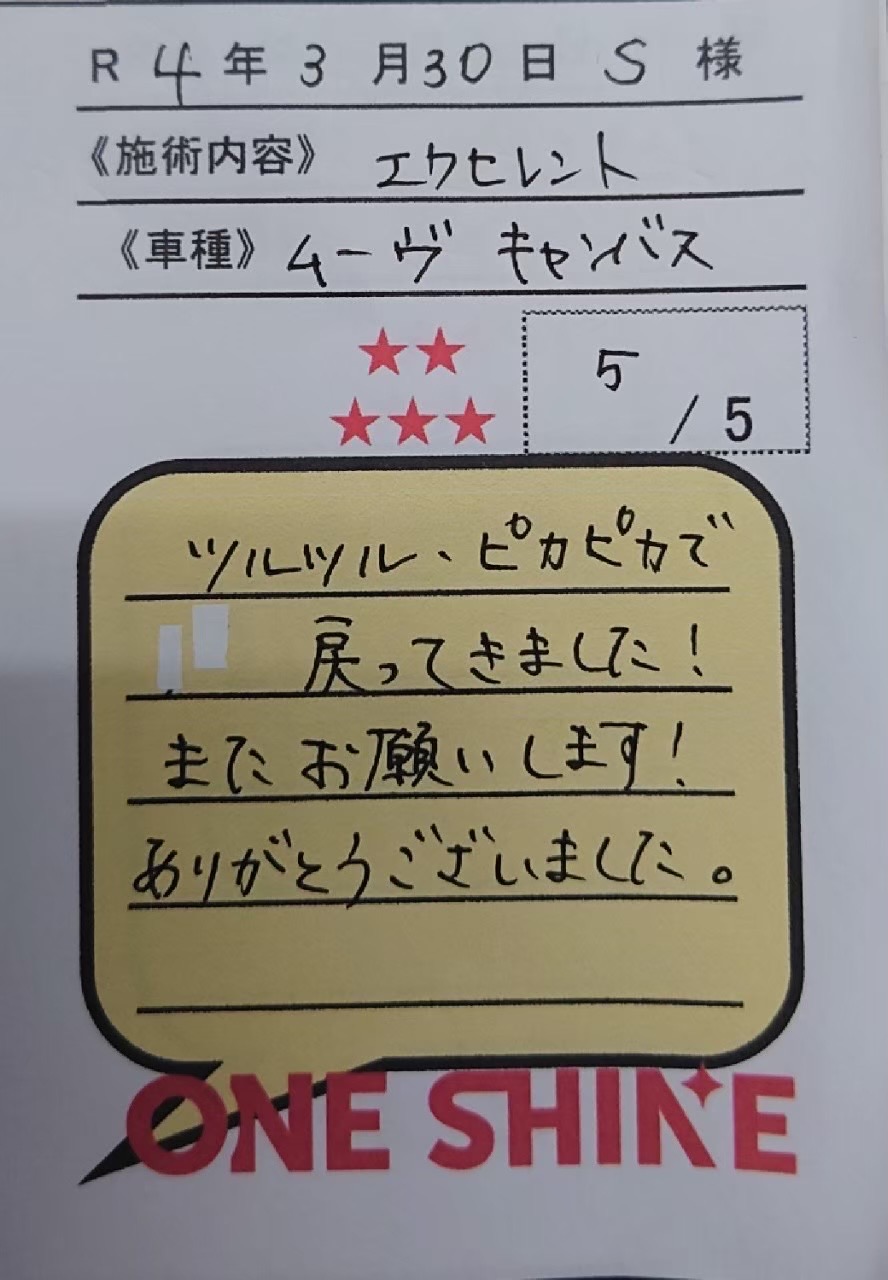 R 4年 3月30日 S 様
《施術内容》 エクセレント
《車種》 ムーヴ キャンバス
5
/ 5
ツルツル、ピカピカで
戻ってきました!
またお願いします!
ありがとうございました。
ONE SHINE